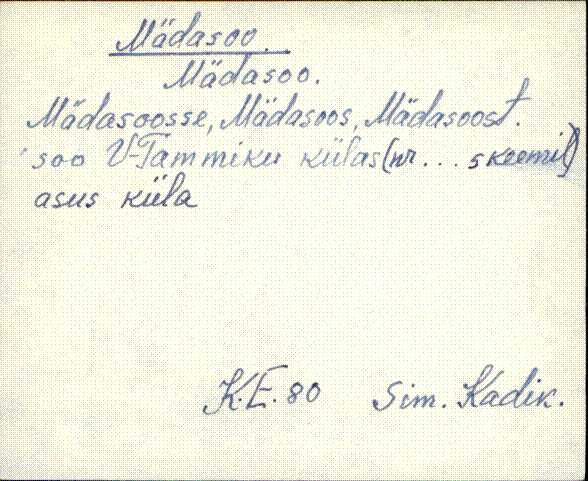 Mädasoo.
Mädasoo.
Mädasoosse, Mädasoos, Mädasoost.
soo V-Tammiku külas (nr. . . skeemil)
asus küla
K.E. 80 Sim. Kadik.